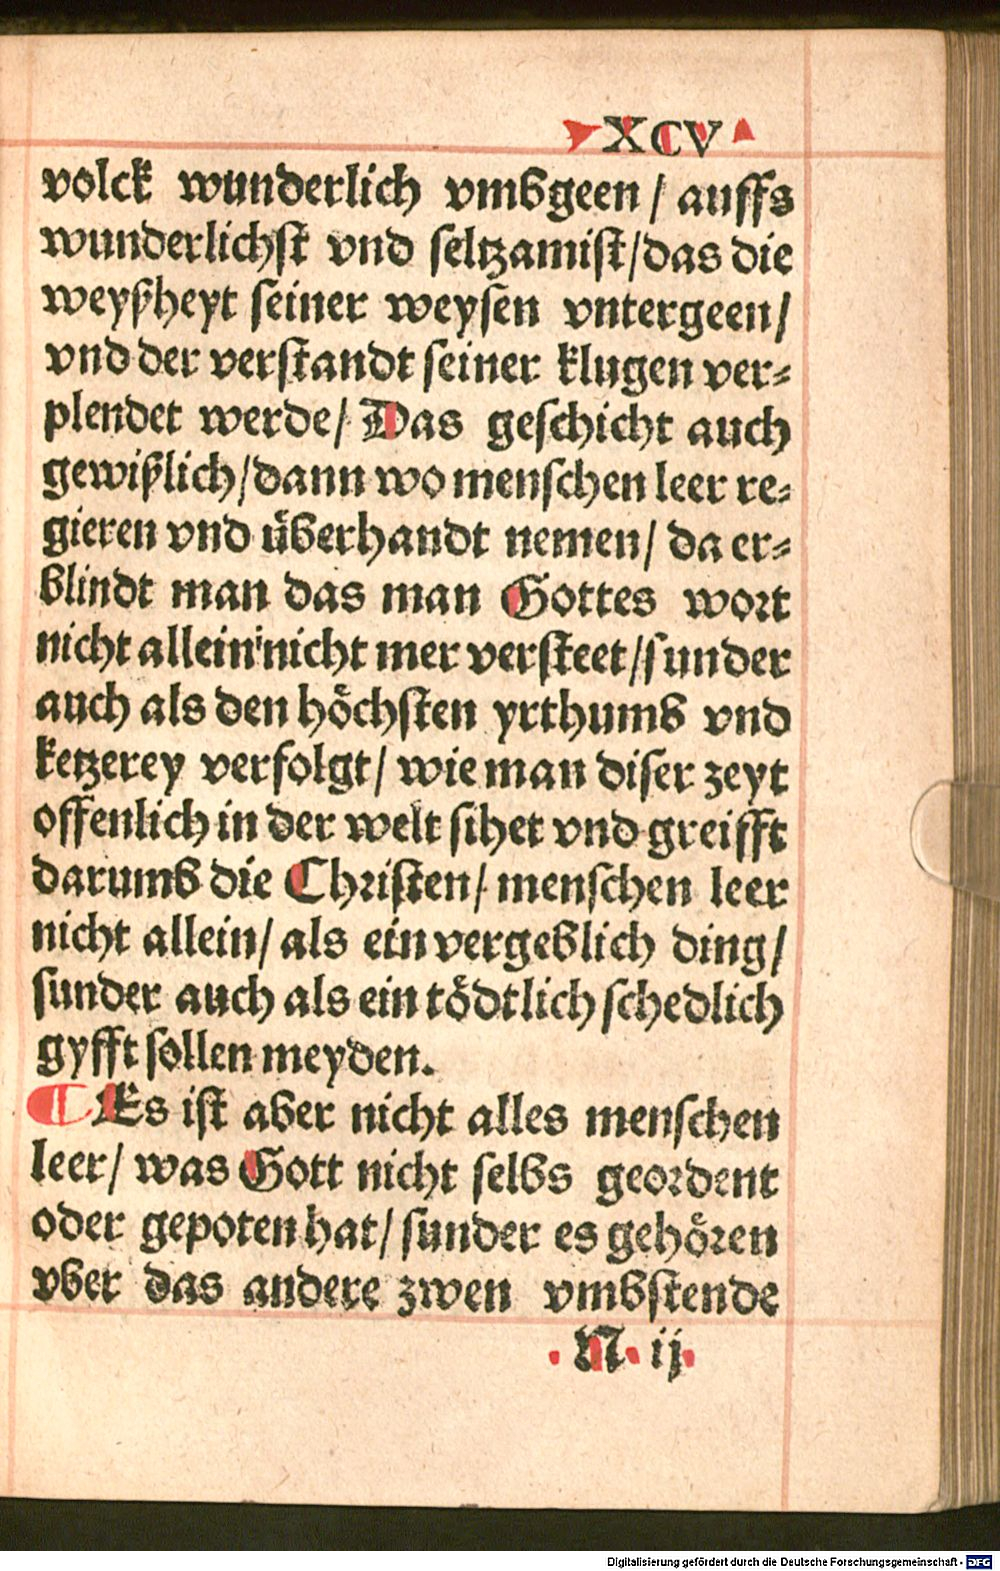 XCV
volck wunderlich vmbgeen / auffs
wunderlichst vnd seltzamist / das die
weyßheyt seiner weysen vntergeen /
vnd der verstandt seiner klugen ver-
plendet werde / Das geschicht auch
gewißlich / dann wo menschen leer re-
gieren vnd überhandt nemen / da er-
blindt man das man Gottes wort
nicht allein nicht mer versteet / sunder
auch als den höchsten yrthumb vnd
ketzerey verfolgt / wie man diser zeyt
offenlich in der welt sihet vnd greifft
darumb die Christen / menschen leer
nicht allein / als ein vergeblich ding /
sunder auch als ein tödtlich schedlich
gyfft sollen meyden.
Es ist aber nicht alles menschen
leer / was Gott nicht selbs geordent
oder gepoten hat / sunder es gehören
vber das andere zwen vmbstende
N ij
Digitalisierung gefördert durch die Deutsche Forschungsgemeinschaft - DFG